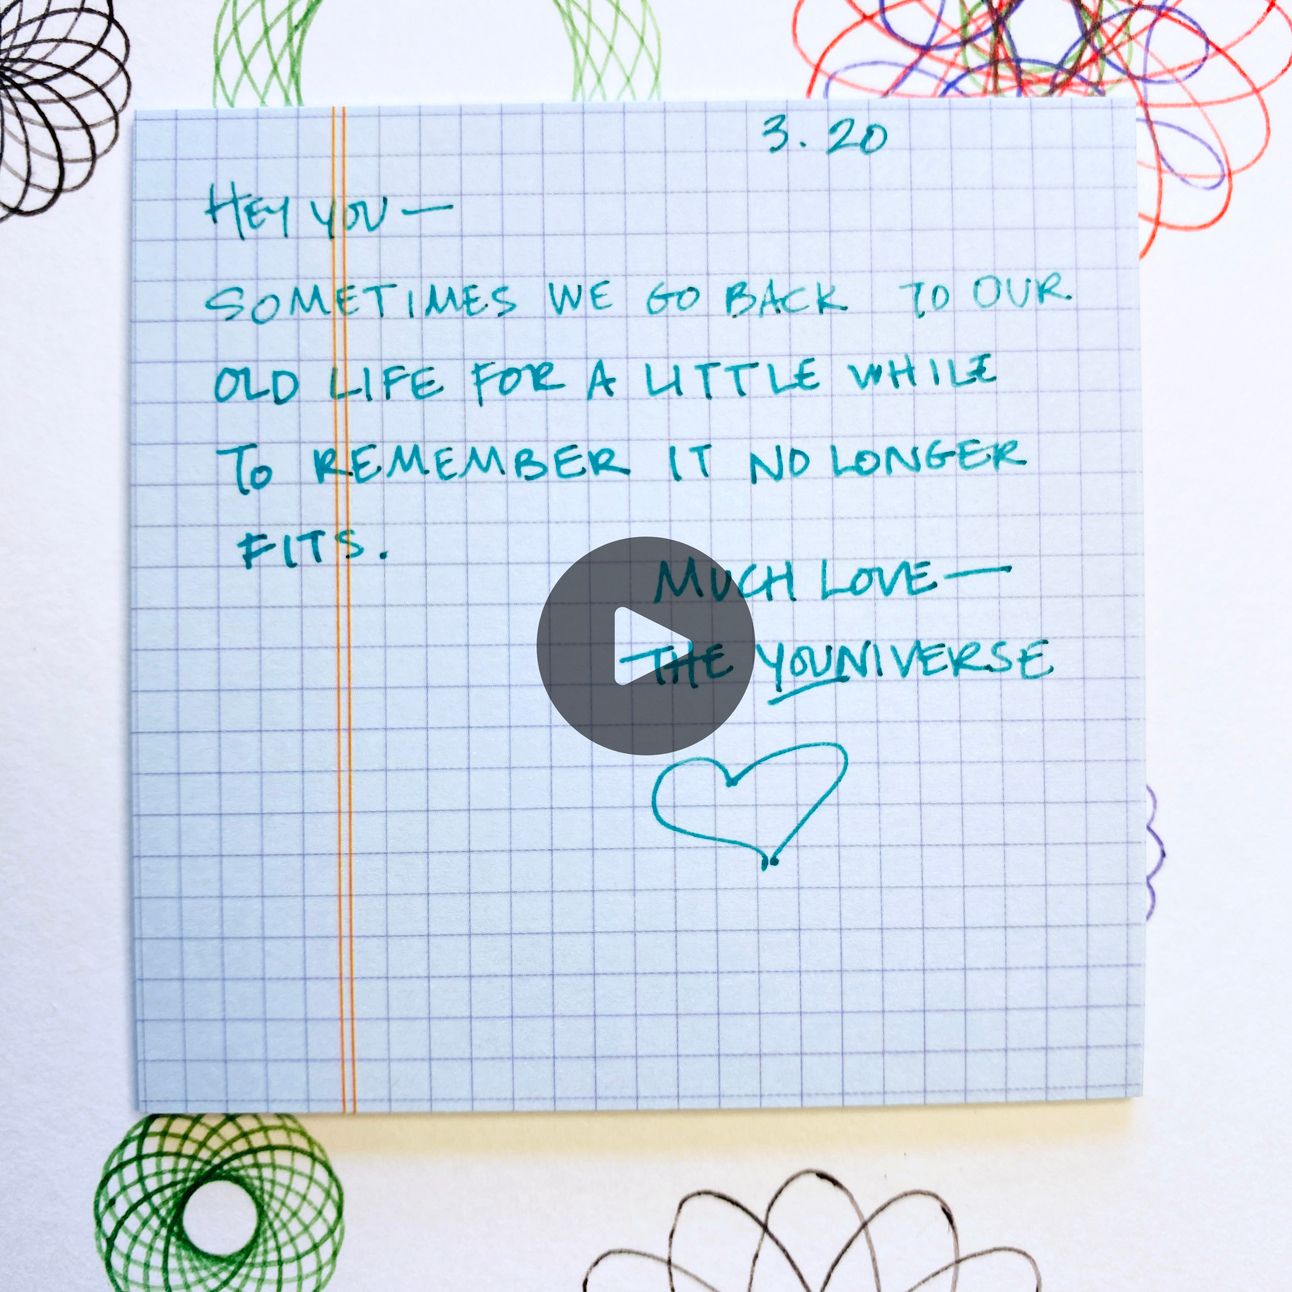 3.20
HEY YOU—
SOMETIMES WE GO BACK TO OUR
OLD LIFE FOR A LITTLE WHILE
TO REMEMBER IT NO LONGER
FITS.
MUCH LOVE—
THE YOUNIVERSE